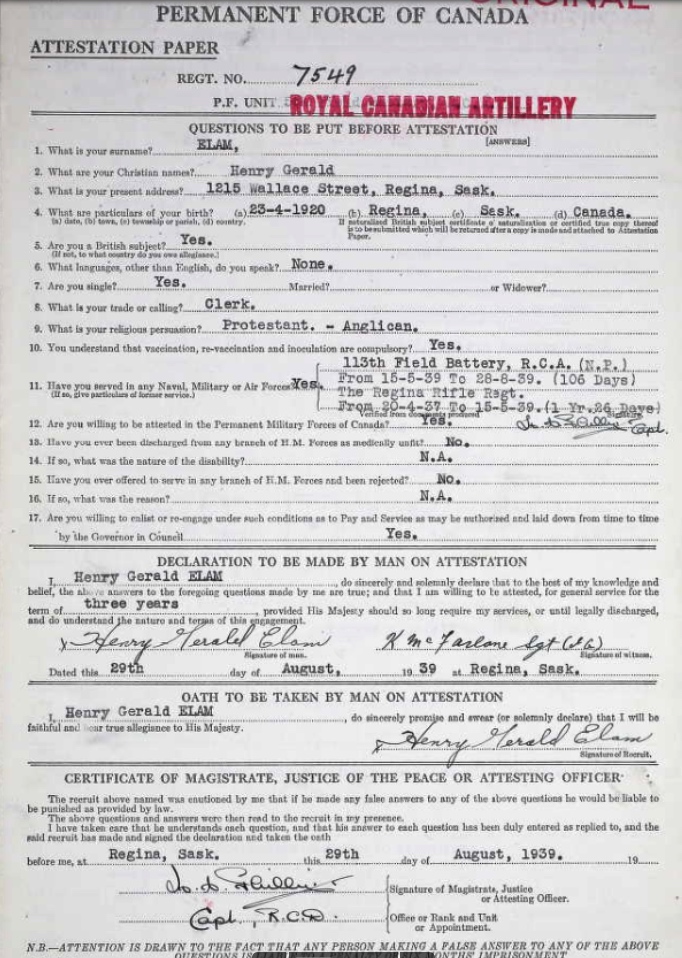 ORIGINAL
PERMANENT FORCE OF CANADA
ATTESTATION PAPER
REGT. NO. 7549
P.F. UNIT ROYAL CANADIAN ARTILLERY
QUESTIONS TO BE PUT BEFORE ATTESTATION
[ANSWERS]
1. What is your surname? ELAM,
2. What are your Christian names? Henry Gerald
3. What is your present address? 1215 Wallace Street, Regina, Sask.
4. What are particulars of your birth? (a) 23-4-1920 (b) Regina, (c) Sask. (d) Canada.
(a) date, (b) town, (c) township or parish, (d) country.
If naturalized British subject certificate of naturalization or certified true copy thereof
is to be submitted which will be returned after a copy is made and attached to Attestation
Paper.
5. Are you a British subject? Yes.
(If not, to what country do you owe allegiance.)
6. What languages, other than English, do you speak? None.
7. Are you single? Yes. Married? or Widower?
8. What is your trade or calling? Clerk.
9. What is your religious persuasion? Protestant. - Anglican.
10. You understand that vaccination, re-vaccination and inoculation are compulsory? Yes.
113th Field Battery, R.C.A. (N.P.)
11. Have you served in any Naval, Military or Air Forces? Yes. From 15-5-39 To 28-8-39. (106 Days)
(If so, give particulars of former service.) The Regina Rifle Regt.
From 20-4-37 To 15-5-39.(1 Yr.26 Days)
Verified from documents produced Signature.
12. Are you willing to be attested in the Permanent Military Forces of Canada? Yes. Capt.
13. Have you ever been discharged from any branch of H.M. Forces as medically unfit? No.
14. If so, what was the nature of the disability? N.A.
15. Have you ever offered to serve in any branch of H.M. Forces and been rejected? No.
16. If so, what was the reason? N.A.
17. Are you willing to enlist or re-engage under such conditions as to Pay and Service as may be authorised and laid down from time to time
by the Governor in Council Yes.
DECLARATION TO BE MADE BY MAN ON ATTESTATION
I, Henry Gerald ELAM, do sincerely and solemnly declare that to the best of my knowledge and
belief, the above answers to the foregoing questions made by me are true; and that I am willing to be attested, for general service for the
term of three years, provided His Majesty should so long require my services, or until legally discharged,
and do understand the nature and terms of this engagement.
x Henry Gerald Elam K McFarlane Sgt
Signature of man. Signature of witness.
Dated this 29th day of August, 1939 at Regina, Sask.
OATH TO BE TAKEN BY MAN ON ATTESTATION
I, Henry Gerald ELAM, do sincerely promise and swear (or solemnly declare) that I will be
faithful and bear true allegiance to His Majesty.
x Henry Gerald Elam
Signature of Recruit.
CERTIFICATE OF MAGISTRATE, JUSTICE OF THE PEACE OR ATTESTING OFFICER
The recruit above named was cautioned by me that if he made any false answers to any of the above questions he would be liable to
be punished as provided by law.
The above questions and answers were then read to the recruit in my presence.
I have taken care that he understands each question, and that his answer to each question has been duly entered as replied to, and the
said recruit has made and signed the declaration and taken the oath
before me, at Regina, Sask. this 29th day of August, 1939. 19
Signature of Magistrate, Justice
or Attesting Officer.
Capt, R.C.D. Office or Rank and Unit
or Appointment.
N.B.—ATTENTION IS DRAWN TO THE FACT THAT ANY PERSON MAKING A FALSE ANSWER TO ANY OF THE ABOVE
QUESTIONS IS MONTHS' IMPRISONMENT